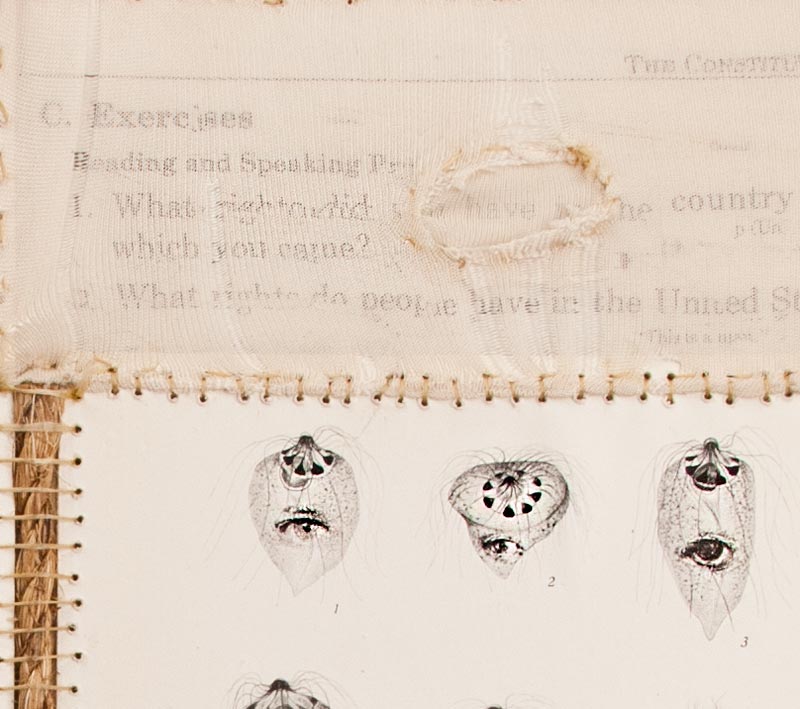 THE CONSTITU
C. Exercises
Reading and Speaking Pr
1. What rights did have the country
which you came?
2. What rights do people have in the United St
"This is a man."
1
2
3